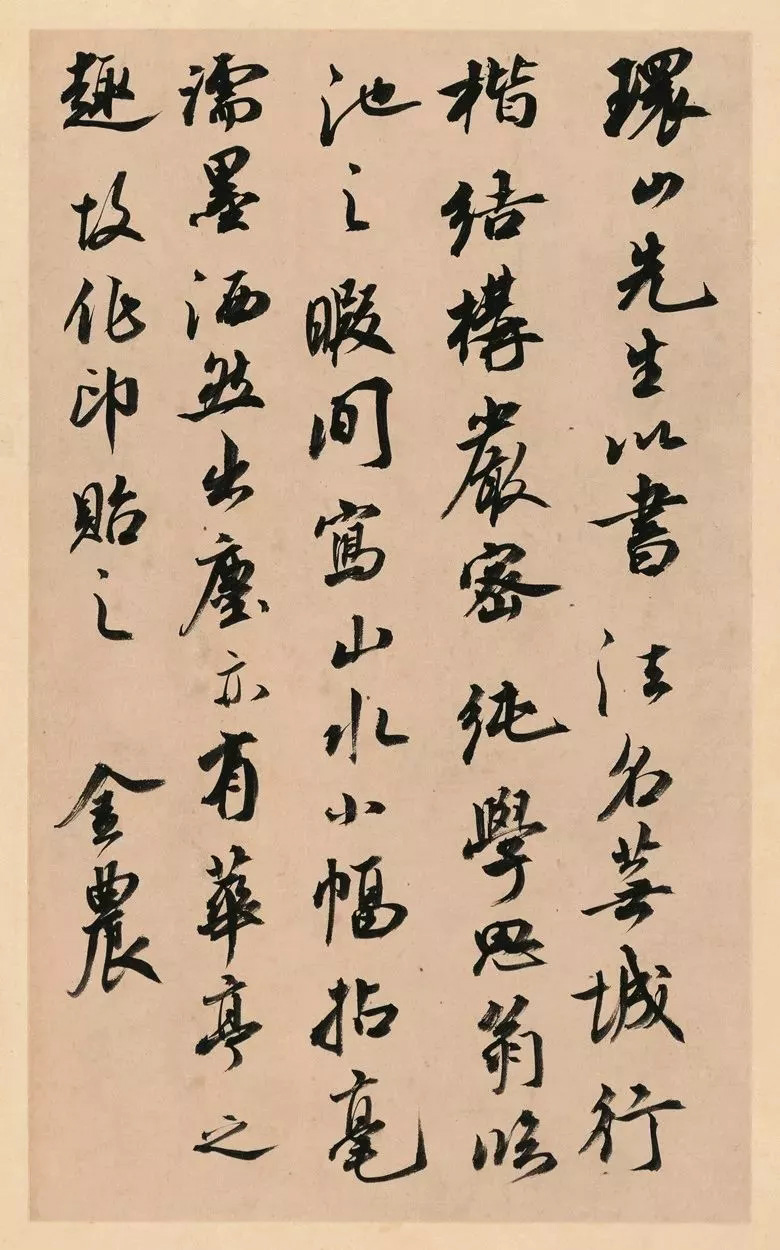 環山先生以書法名芜城行
楷結構嚴密純學思翁臨
池之暇間寫山水小幅拈毫
濡墨洒然出塵亦有華亭之
趣故作印貽之　金農